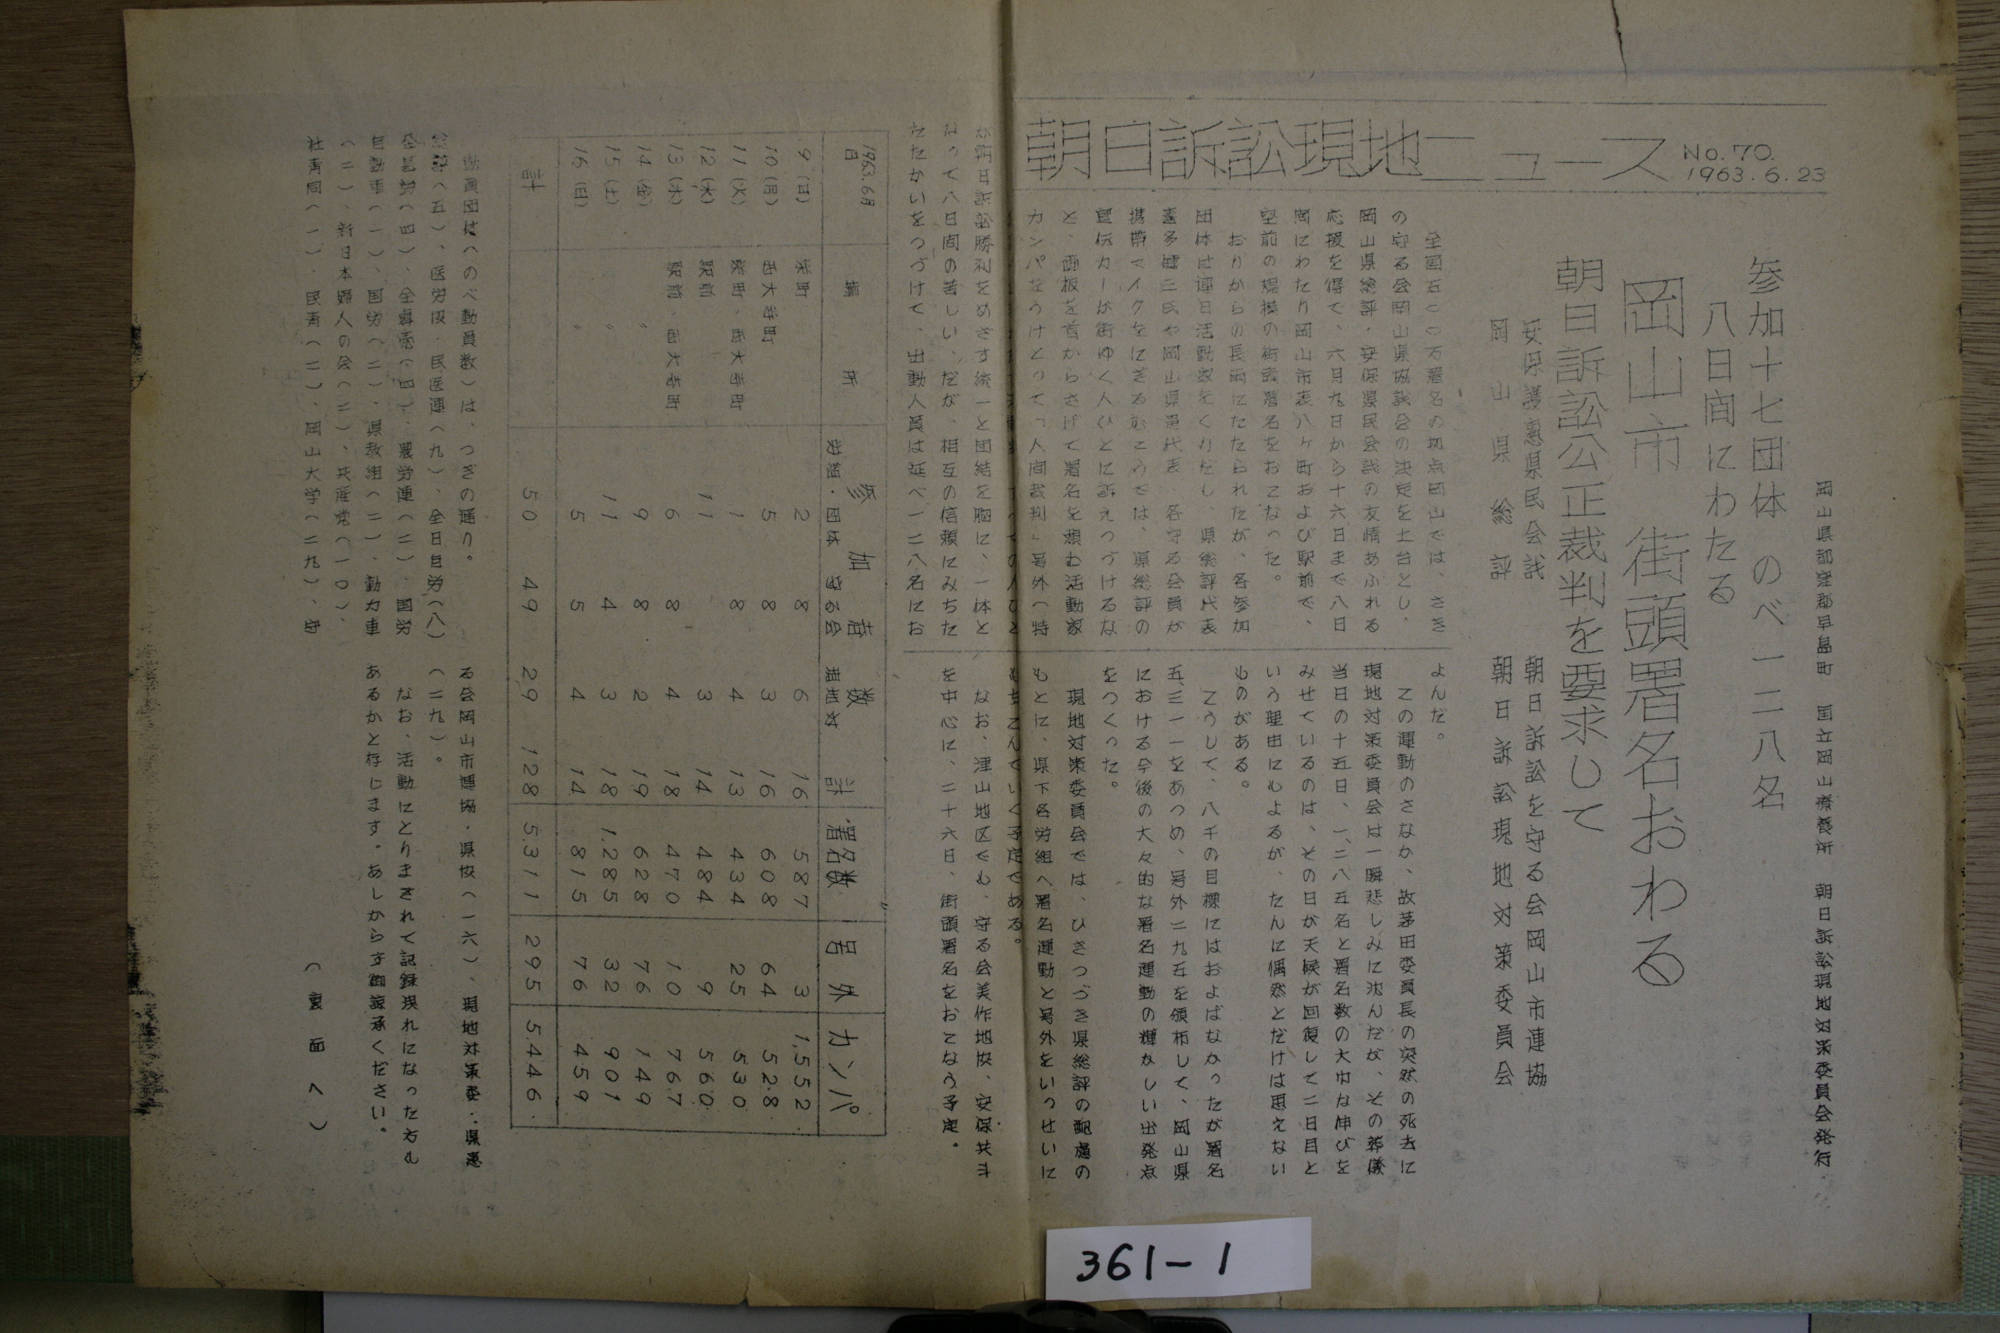 朝日訴訟現地ニュース
No.70.
1963.6.23
岡山県都窪郡早島町 国立岡山療養所 朝日訴訟現地対策委員会発行
参加十七団体 のべ一二八名
八日間にわたる
岡山市 街頭署名おわる
朝日訴訟公正裁判を要求して
安保護憲県民会議 朝日訴訟を守る会岡山市連協
岡山県総評 朝日訴訟現地対策委員会
の守る会岡山県協議会の決定を土台とし、
岡山県総評・安保県民会議の友情あふれる
応援を得て、六月九日から十六日まで八日
間にわたり岡山市表八ケ町および駅前で、
空前の規模の街頭署名をおこなった。
おりからの長雨にたたられたが、各参加
団体は連日活動家をくりだし、県総評代表
喜多健三氏や岡山県憲代表、各守る会員が
携帯マイクをにぎるむこうでは、県総評の
宣伝カーが街ゆく人びとに訴えつづけるな
と、画板を首からさげて署名を願う活動家
カンパをうけとって「人間裁判」号外(特
が朝日訴訟勝利をめざす統一と団結を胸に、一体と
なって八日間の苦しい、だが、相互の信頼にみちた
たたかいをつづけて、出動人員は延べ一二八名にお
よんだ。
この運動のさなか、故茅田委員長の突然の死去に
現地対策委員会は一瞬悲しみに沈んだが、その葬儀
当日の十五日、一、二八五名と署名数の大巾な伸びを
みせているのは、その日が天候が回復して二日目と
いう理由にもよるが、たんに偶然とだけは思えない
ものがある。
こうして、八千の目標にはおよばなかったが署名
五、三一一をあつめ、号外二九五を頒布して、岡山県
における今後の大々的な署名運動の輝かしい出発点
をつくった。
現地対策委員会では、ひきつづき県総評の配慮の
もとに、県下各労組へ署名運動と号外をいっせいに
もちこんでいく予定である。
なお、津山地区でも、守る会美作地協、安保共斗
を中心に、二十六日、街頭署名をおこなう予定。
1963.6月 日 場所 参加者数 労組・団体 守る会 現地対 計 署名数 号外 カンパ
9(日) 栄町 2 8 6 16 587 3 1,552.
10(月) 西大寺町 5 8 3 16 608 64 528.
11(火) 栄町、西大寺町 1 8 4 13 434 25 530
12(水) 駅前 11 3 14 484 9 560.
13(木) 駅前・西大寺町 6 8 4 18 470 10 767
14(金) 〃 9 8 2 19 628 76 149
15(土) 〃 11 4 3 18 1,285 32 901
16(日) 5 5 4 14 815 76 459
計 50 49 29 128 5311 295 5.446.
動員団体(のべ動員数)は、つぎの通り。
(五)、医労協・民医連(九)、全日自労(八)
(四)、全専売(四)、農労連(二)、国労
自動車(一)、国労(二)、県教組(二)、動力車
(二)、新日本婦人の会(二)、共産党(一〇)、
社青同(一)、民青(二)、岡山大学(二九)、守
る会岡山市連協・県協(一六)、現地対策委・県憲
(二九)。
なお、活動にとりまぎれて記録洩れになった方も
あるかと存じます。あしからず御諒承ください。
(裏面へ)
361-1